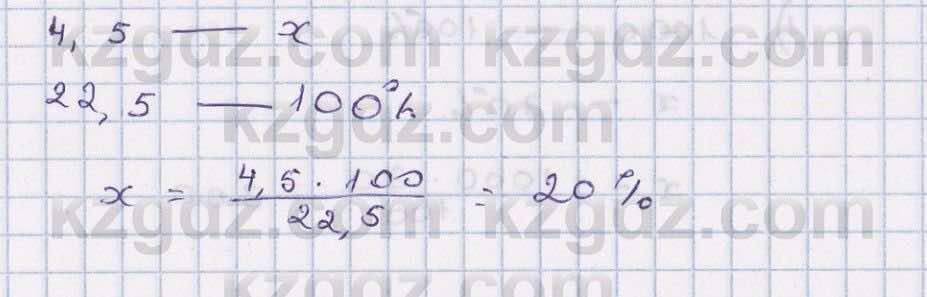 4,5 — x
22,5 — 100%
x = 4,5 · 100 / 22,5 = 20%
kzgdz.com kzgdz.com
kzgdz.com
kzgdz.com kzgdz.com
kzgdz.com